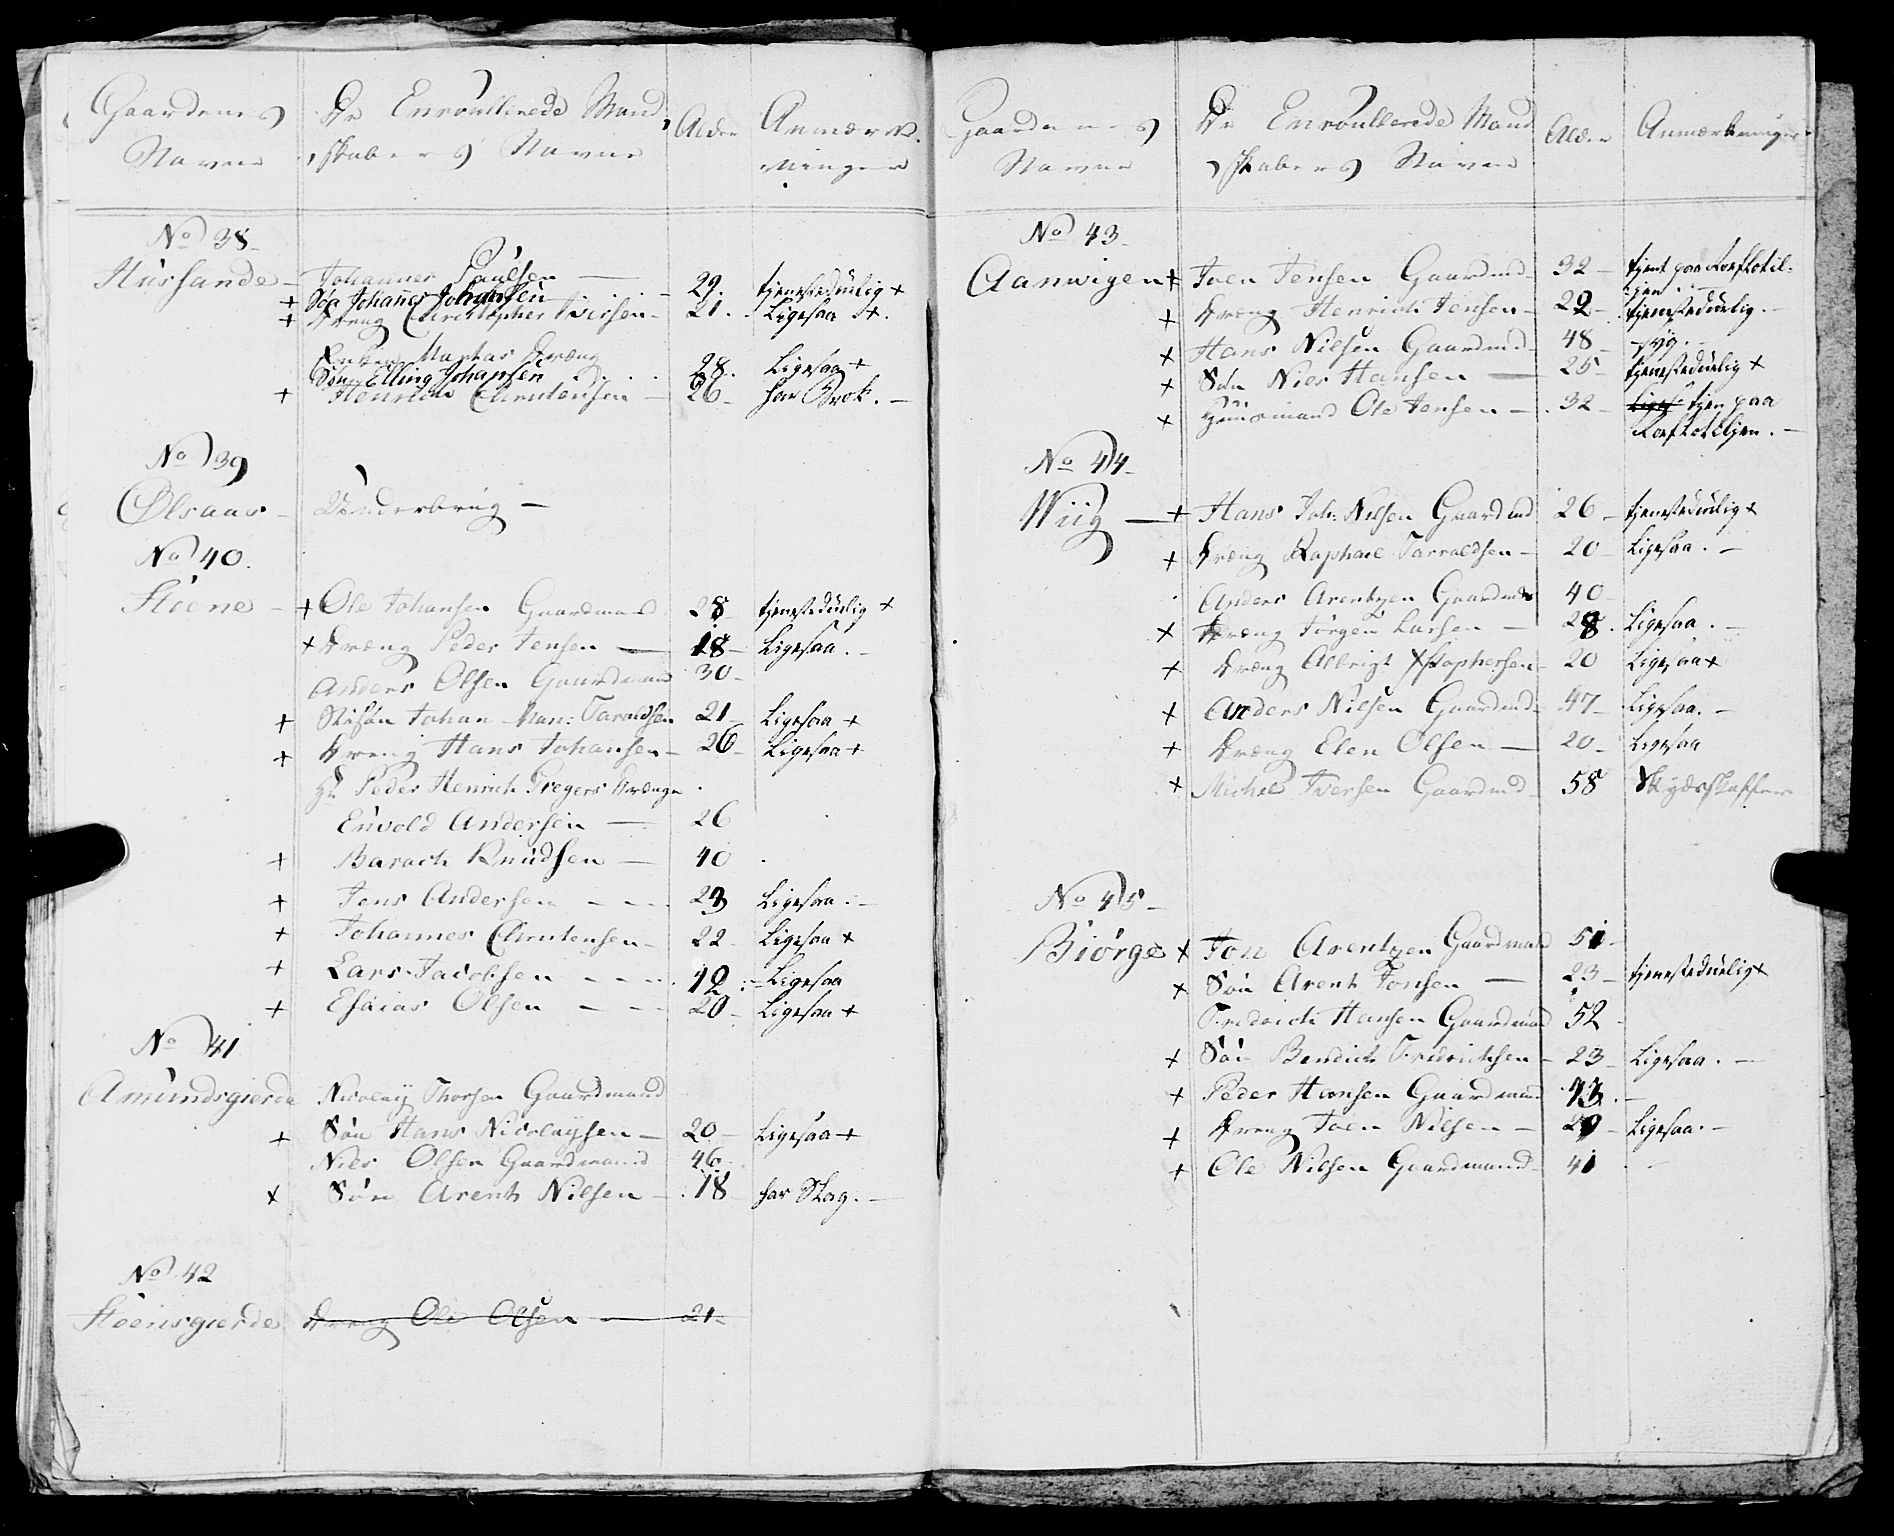 Gaardenes Navne
De Enroullerede Mand-
skabers Navne
Alder
Anmærk-
ninger
No 38
Hussande - Johannes Paulsen -
+ Søn Johanes Johansen 29. tjenestedulig +
+ Dræng Christopher Iversen - 21. Ligesaa +.
Enken Marthas Dræng
Søn Elling Johansen . . . 28. Ligesaa +
+ Henrich Christensen - 26 - har Brok. -
No 39
Ølsaas - Underbrug -
No 40.
Høene - + Ole Johansen Gaardmand 28 tjenestedulig +
+ Dræng Peder Jensen - 18 - Ligesaa. -
Anders Olsen Gaardmand 30 -
+ Stifsøn Johan Han: Taraldsen 21 Ligesaa +
+ Dreng Hans Johansen - 26 - Ligesaa +
Hr Peder Henrich Gregers Drænge
Envold Andersen - 26
+ Barach Knudsen - 40
+ Jens Andersen - - - 23 Ligesaa. -
+ Johannes Christensen - 22 - Ligesaa +
+ Lars Jacobsen - - - 19 Ligesaa
+ Esaias Olsen - - - 20 - Ligesaa +
No 41
Amundsgierde Nicolay Thorsen Gaardmand
+ Søn Hans Nicolaysen - 20 - Ligesaa +
Niels Olsen Gaardmand 46
+ Søn Arent Nilsen - 18 har Slag. -
No 42
Høensgierde Dreng Ole Olsen - 21 -
Gaardenes Navne
De Enroullerede Mand
skabers Navne
Alder
Anmærkninger
No 43 -
Aanwigen + Joen Jensen Gaardmd - 32 - tjent paa Roeflotil-
jen
+ Dræng Henrich Jensen - 22 - tjenestedulig. -
+ Hans Nilsen Gaardmd 48 - syg. -
+ Søn Niels Hansen - 25 - tjenestedulig +
+ Huusmand Ole Jensen - 32 - Liges tjen paa
Roeflotiljen. -
No 44 -
Wiig - + Hans Joh: Nilsen Gaardmd 26 - tjenestedulig +
+ Dræng Raphael Tarraldsen - 20 - Ligesaa. -
Anders Arentzen Gaardmd 40 -
+ Dræng Jørgen Larsen - 28. Ligesaa. -
+ Dræng Albrigt Xstophersen - 20 Ligesaa +
+ Anders Nilsen Gaardmd - 47 - Ligesaa. -
+ Dræng Elen Olsen - 20 - Ligesaa
+ Michel Iversen Gaardmd - 58 Skydsskaffer
No 45 -
Biørge + Jon Arentzen Gaardmand 51 -
+ Søn Arent Jonsen - 23 - tjenestedulig +
Fridrich Hansen Gaardmand 52 -
+ Søn Bendich Fridrichsen - 23 - Ligesaa. -
+ Peder Hansen Gaardmand 43. -
+ Dreng Joen Nilsen - 29 - Ligesaa. -
+ Ole Nilsen Gaardmand - 41 -